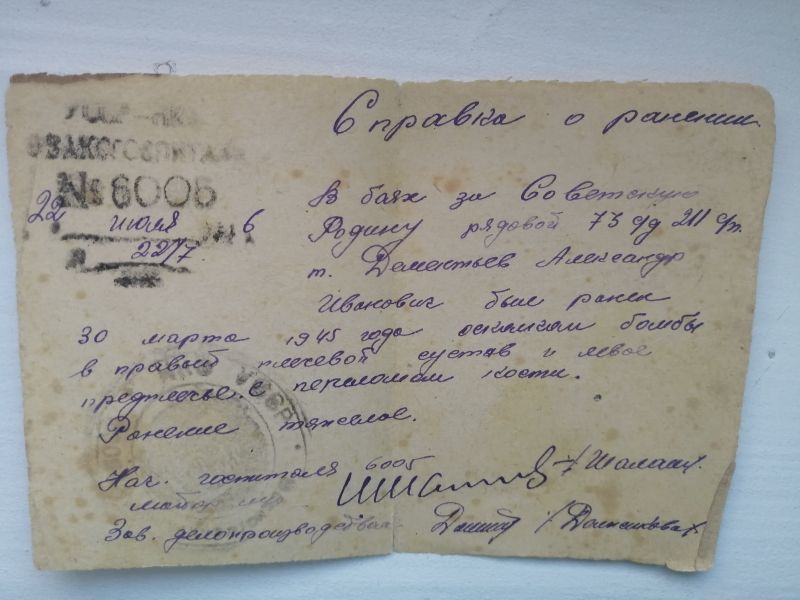 ЭВАКОГОСПИТАЛЬ
№ 6005
22 июля 6
22/7
Справка о ранении
В боях за Советскую
Родину рядовой 73 сд 211 сп.
т. Дементьев Александр
Иванович был ранен
30 марта 1945 года осколком бомбы
в правый плечевой сустав и левое
предплечье с переломом кости.
Ранение тяжелое.
Нач. госпиталя 6005
майор
Зав. делопроизводством